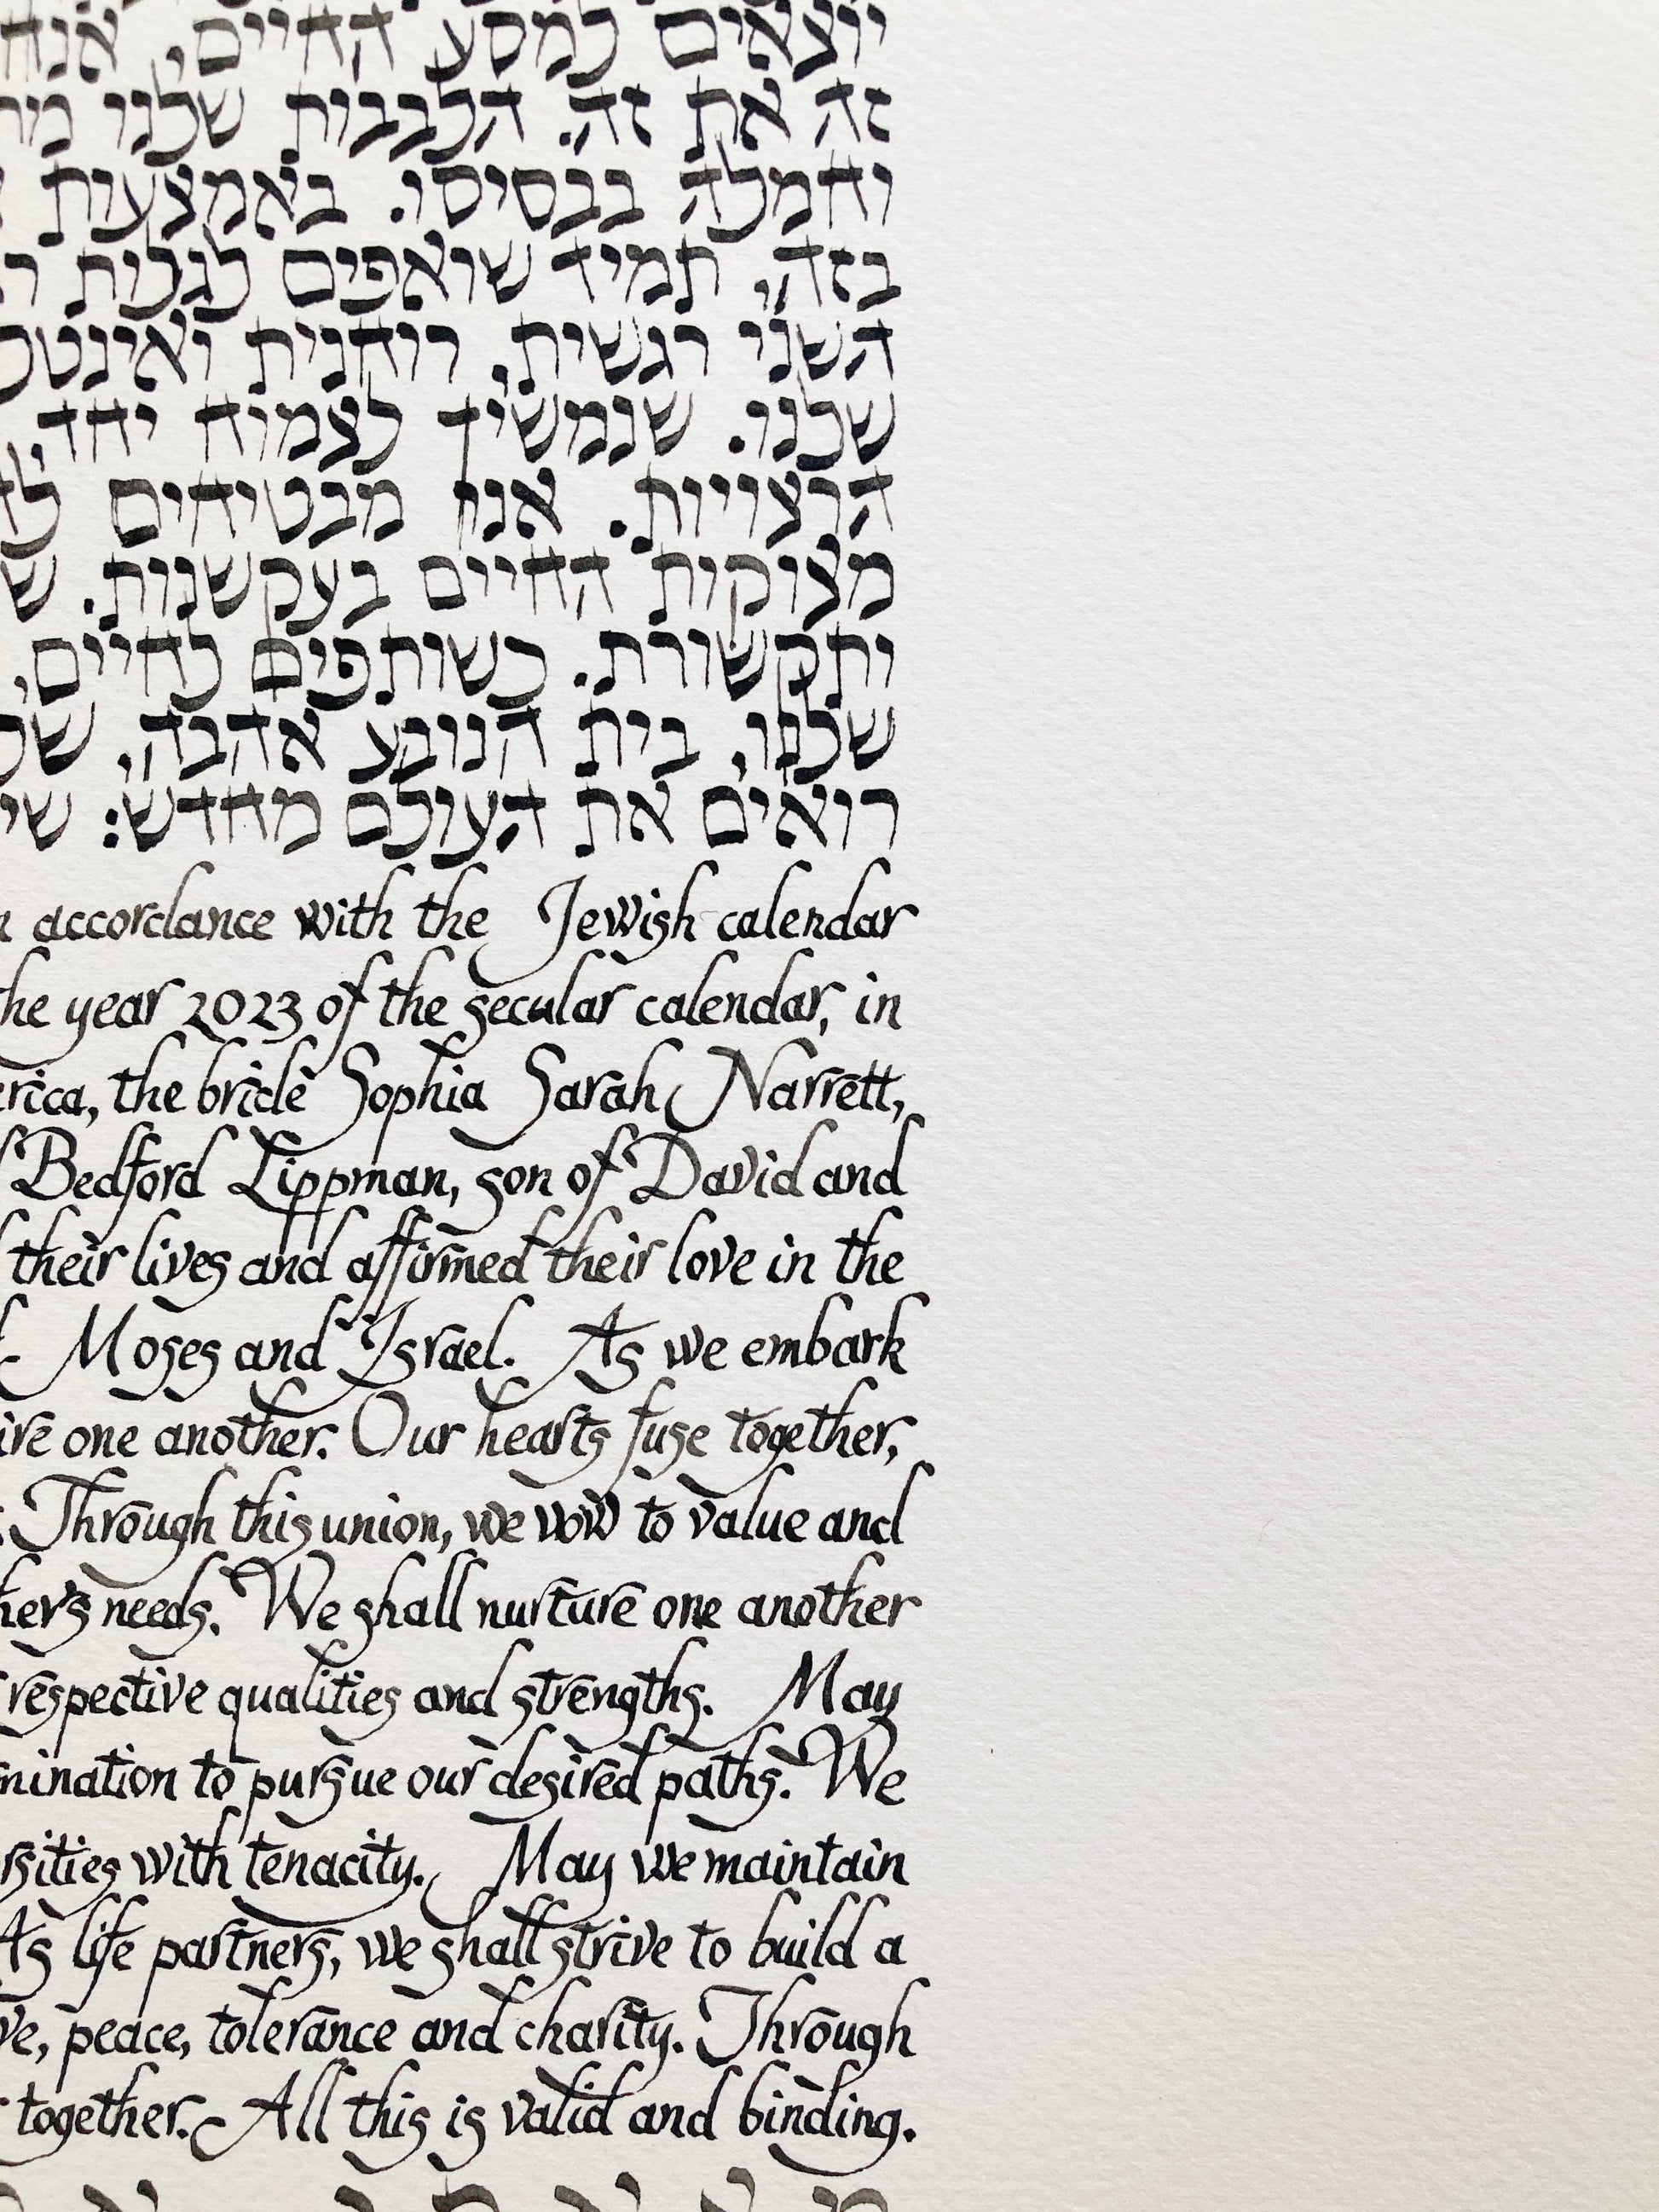 יוצאים למסע החיים, אנח
זה את זה. הלבבות שלנו מת
וחמלה בבסיסו. באמצעות
בזה, תמיד שואפים לגלות ר
השני רגשית, רוחנית ואינטל
שלנו. שנמשיך לצמוח יחד,
הרצויות. אנו מבטיחים לה
מצוקות החיים בעקשנות. ש
ותקשורת. כשותפים לחיים,
שלנו, בית הנובע אהבה, של
רואים את העולם מחדש: שי
n accordance with the Jewish calendar
he year 2023 of the secular calendar, in
erica, the bride Sophia Sarah Narrett,
Bedford Lippman, son of David and
their lives and affirmed their love in the
f Moses and Israel. As we embark
ire one another. Our hearts fuse together,
Through this union, we vow to value and
her's needs. We shall nurture one another
respective qualities and strengths. May
mination to pursue our desired paths. We
rsities with tenacity. May we maintain
As life partners, we shall strive to build a
ve, peace, tolerance and charity. Through
together. All this is valid and binding.